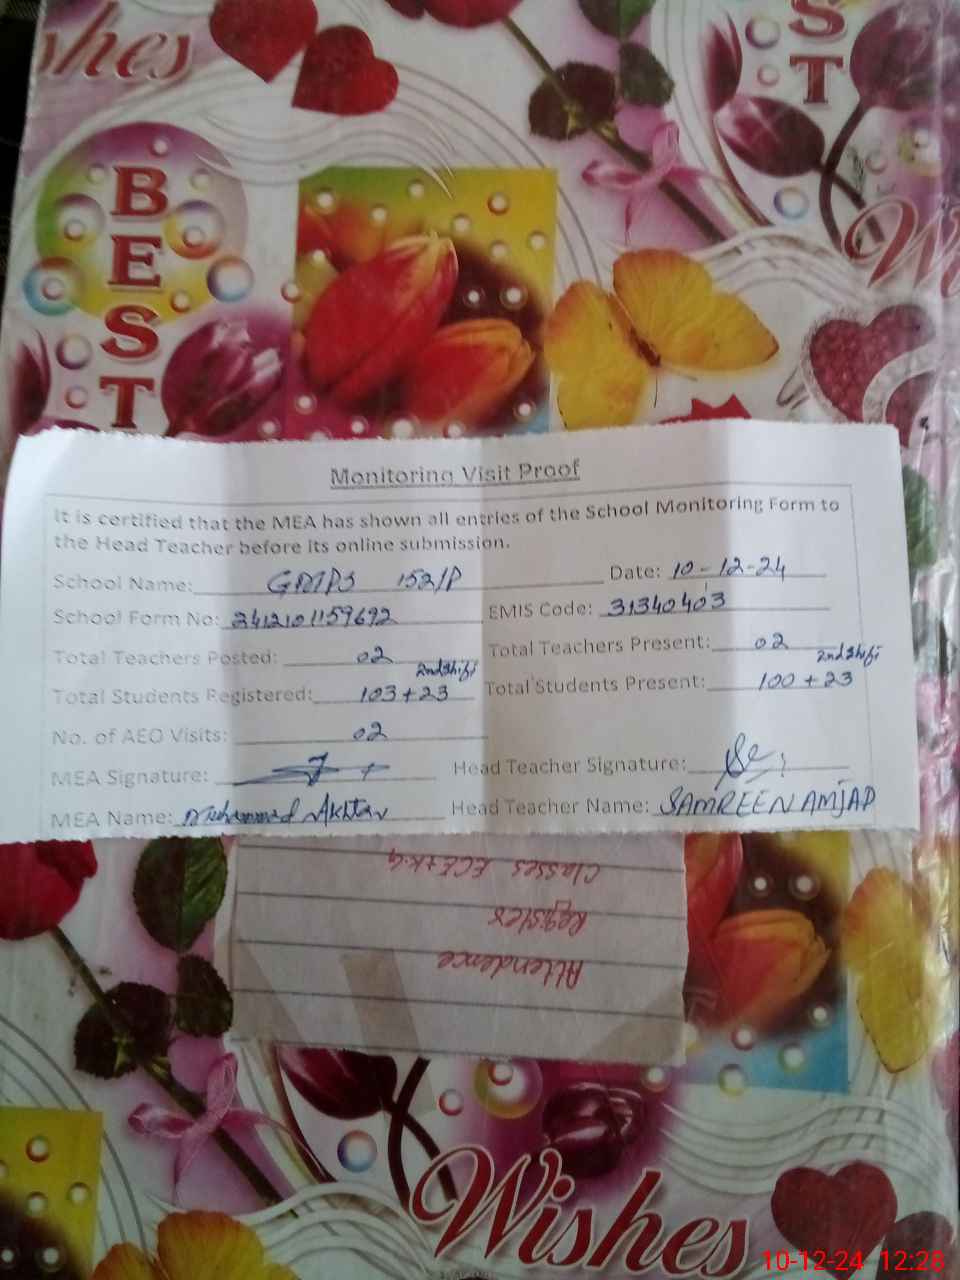 shes
BEST
ST
Wi
Monitoring Visit Proof
It is certified that the MEA has shown all entries of the School Monitoring Form to
the Head Teacher before its online submission.
School Name: GMPS 152/P Date: 10-12-24
School Form No: 2412101159692 EMIS Code: 31340403
Total Teachers Posted: 02 Total Teachers Present: 02
2nd Shift 2nd Shift
Total Students Registered: 103+23 Total Students Present: 100+23
No. of AEO Visits: 02
MEA Signature: Head Teacher Signature:
MEA Name: Muhammad Akhtar Head Teacher Name: SAMREEN AMJAD
Attendence
Register
Classes ECE+K.G
Wishes
10-12-24 12:28